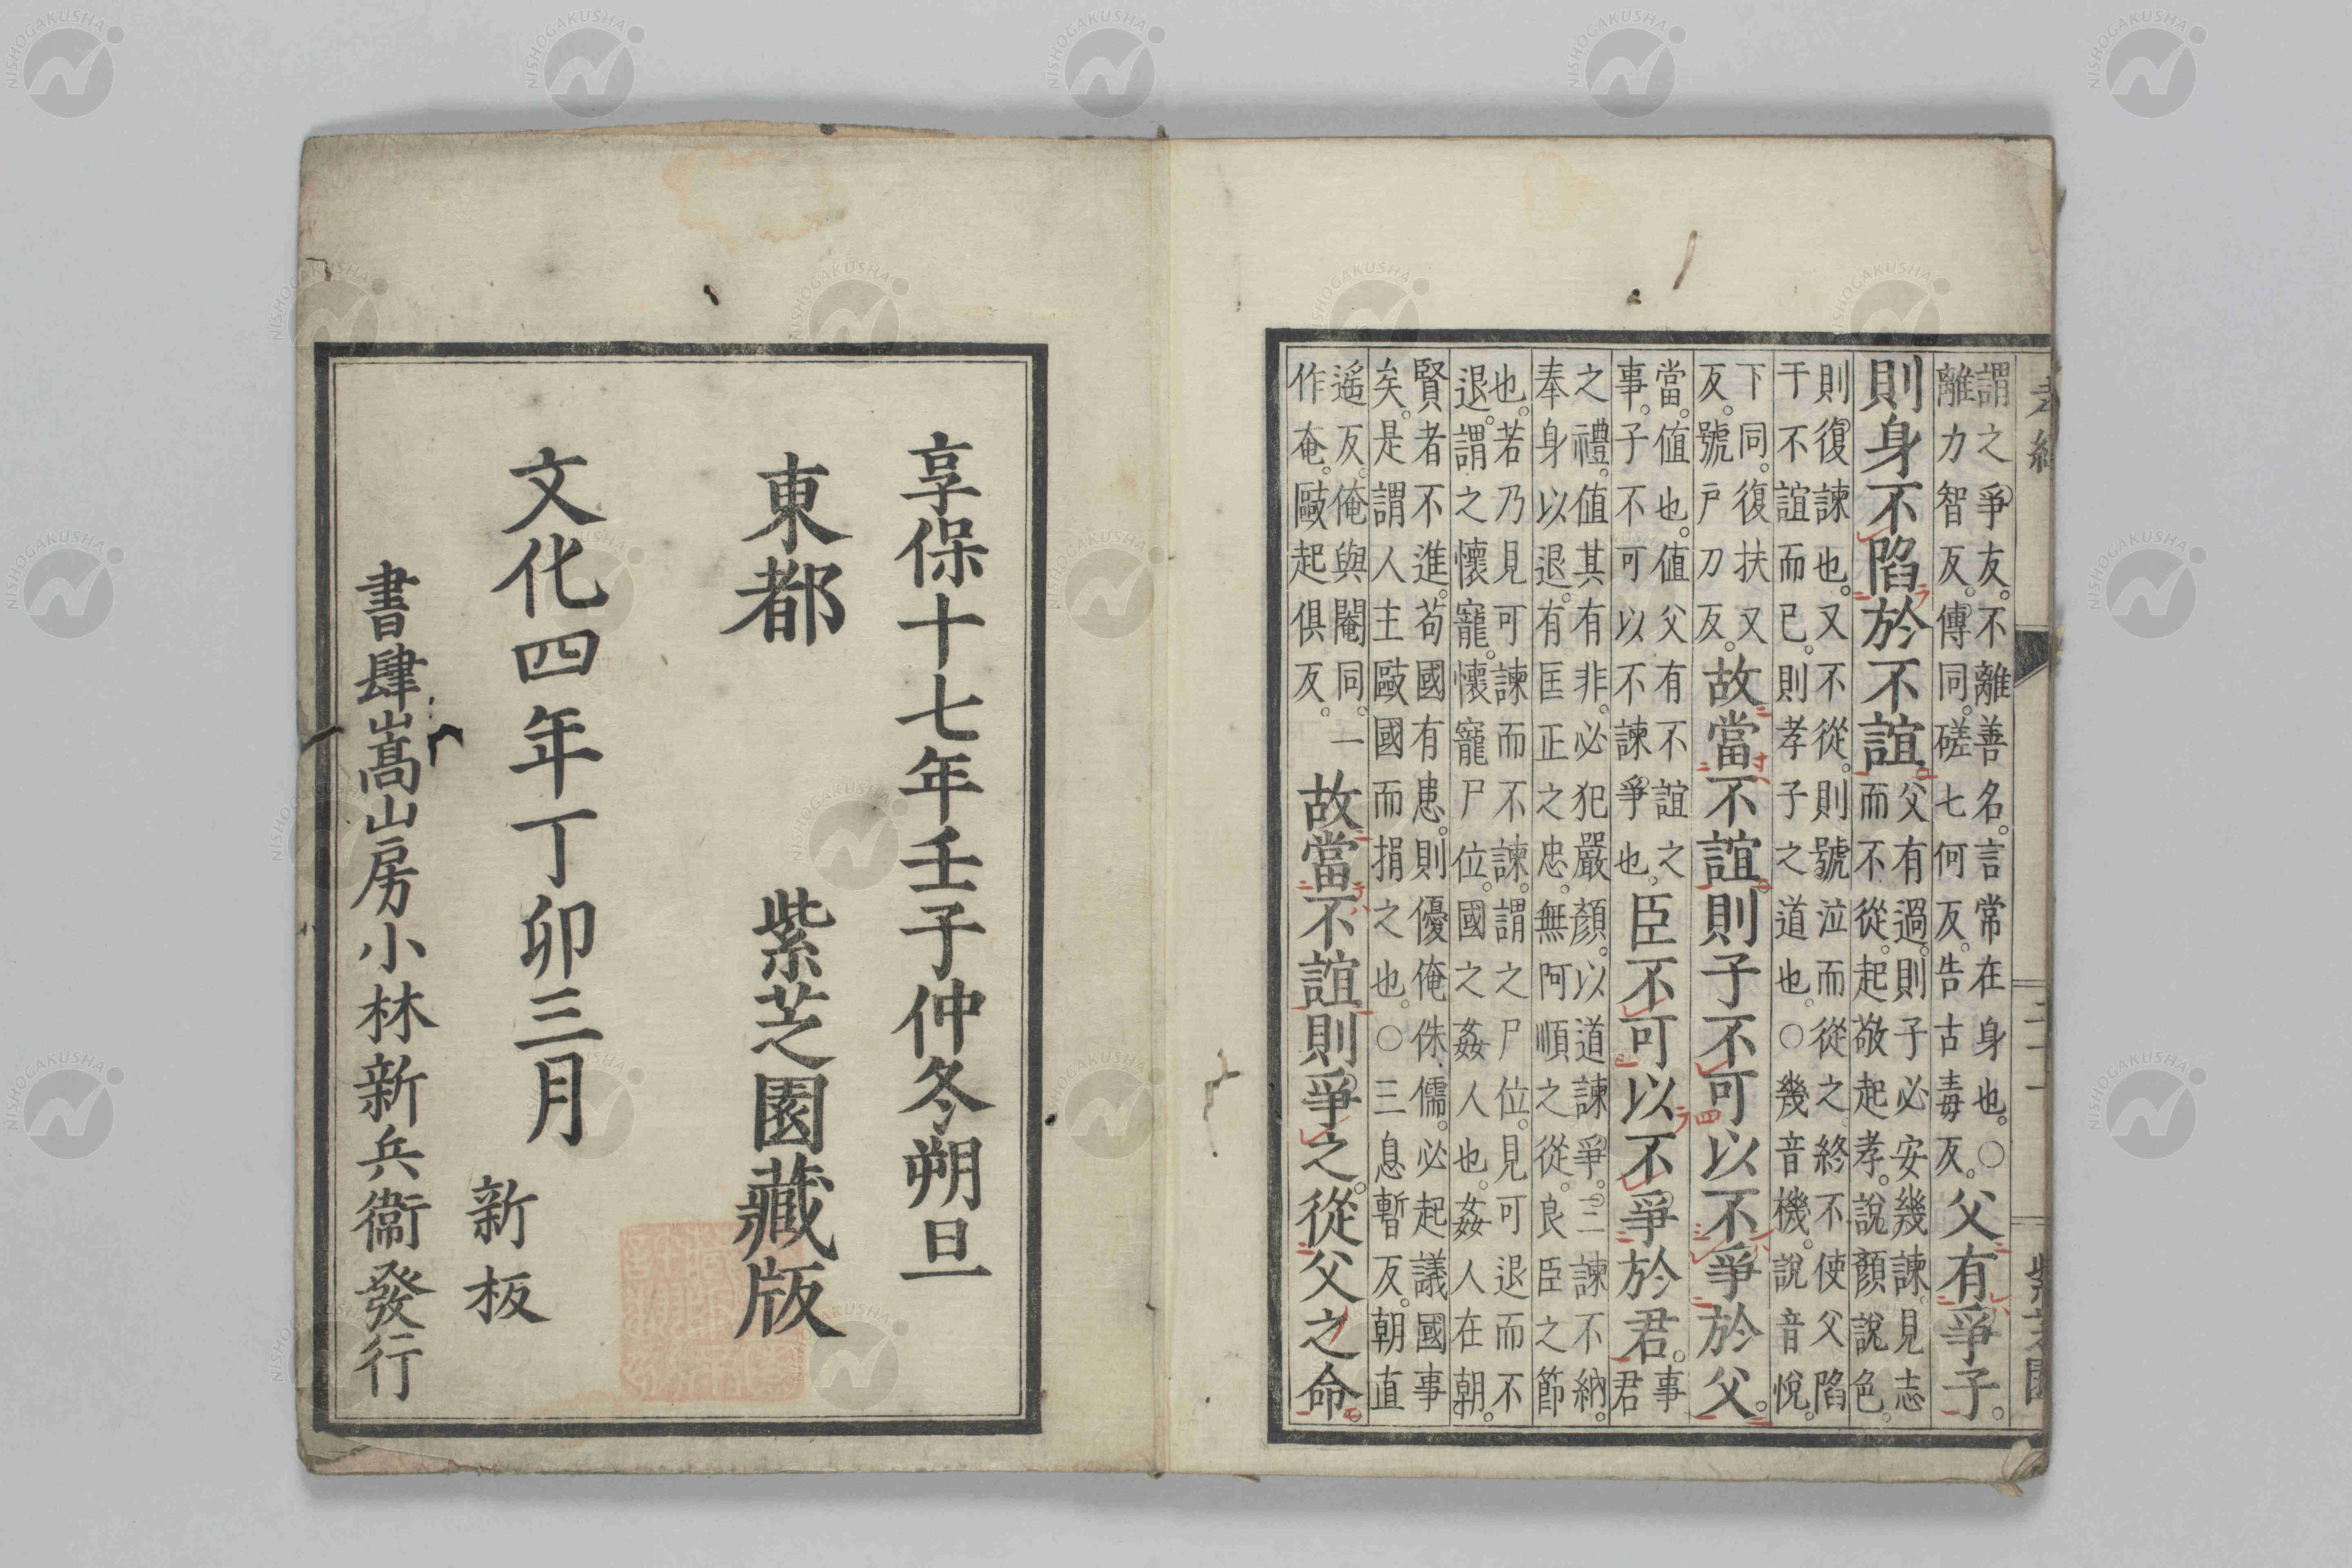 孝經
謂之爭友。不離善名。言常在身也。○
離力智反。傳同。磋七何反。告古毒反。
父有爭子。
則身不陷於不誼。
父有過。則子必安幾諫。見志
而不從。起敬起孝。說顏說色。
則復諫也。又不從。則號泣而從之。終不使父陷
于不誼而已。則孝子之道也。○幾音機。說音悅。
下同。復扶又
反。號戸刀反。
故當不誼則子不可以不爭於父。
當。值也。值父有不誼之
事。子不可以不諫爭也。
臣不可以不爭於君。
事
君
之禮。值其有非。必犯嚴顏。以道諫爭。三諫不納。
奉身以退。有匡正之忠。無阿順之從。良臣之節
也。若乃見可諫而不諫。謂之尸位。見可退而不
退。謂之懷寵。懷寵尸位。國之姦人也。姦人在朝。
賢者不進。苟國有患。則優俺侏儒。必起議國事
矣。是謂人主歐國而捐之也。○三息暫反。朝直
遙反。俺與閹同。一
作奄。歐起俱反。
故當不誼則爭之。從父之命。
二十一
紫芝園
享保十七年壬子仲冬朔旦
東都 紫芝園藏版
文化四年丁卯三月 新板
書肆嵩山房小林新兵衞發行
NISHOGAKUSHA